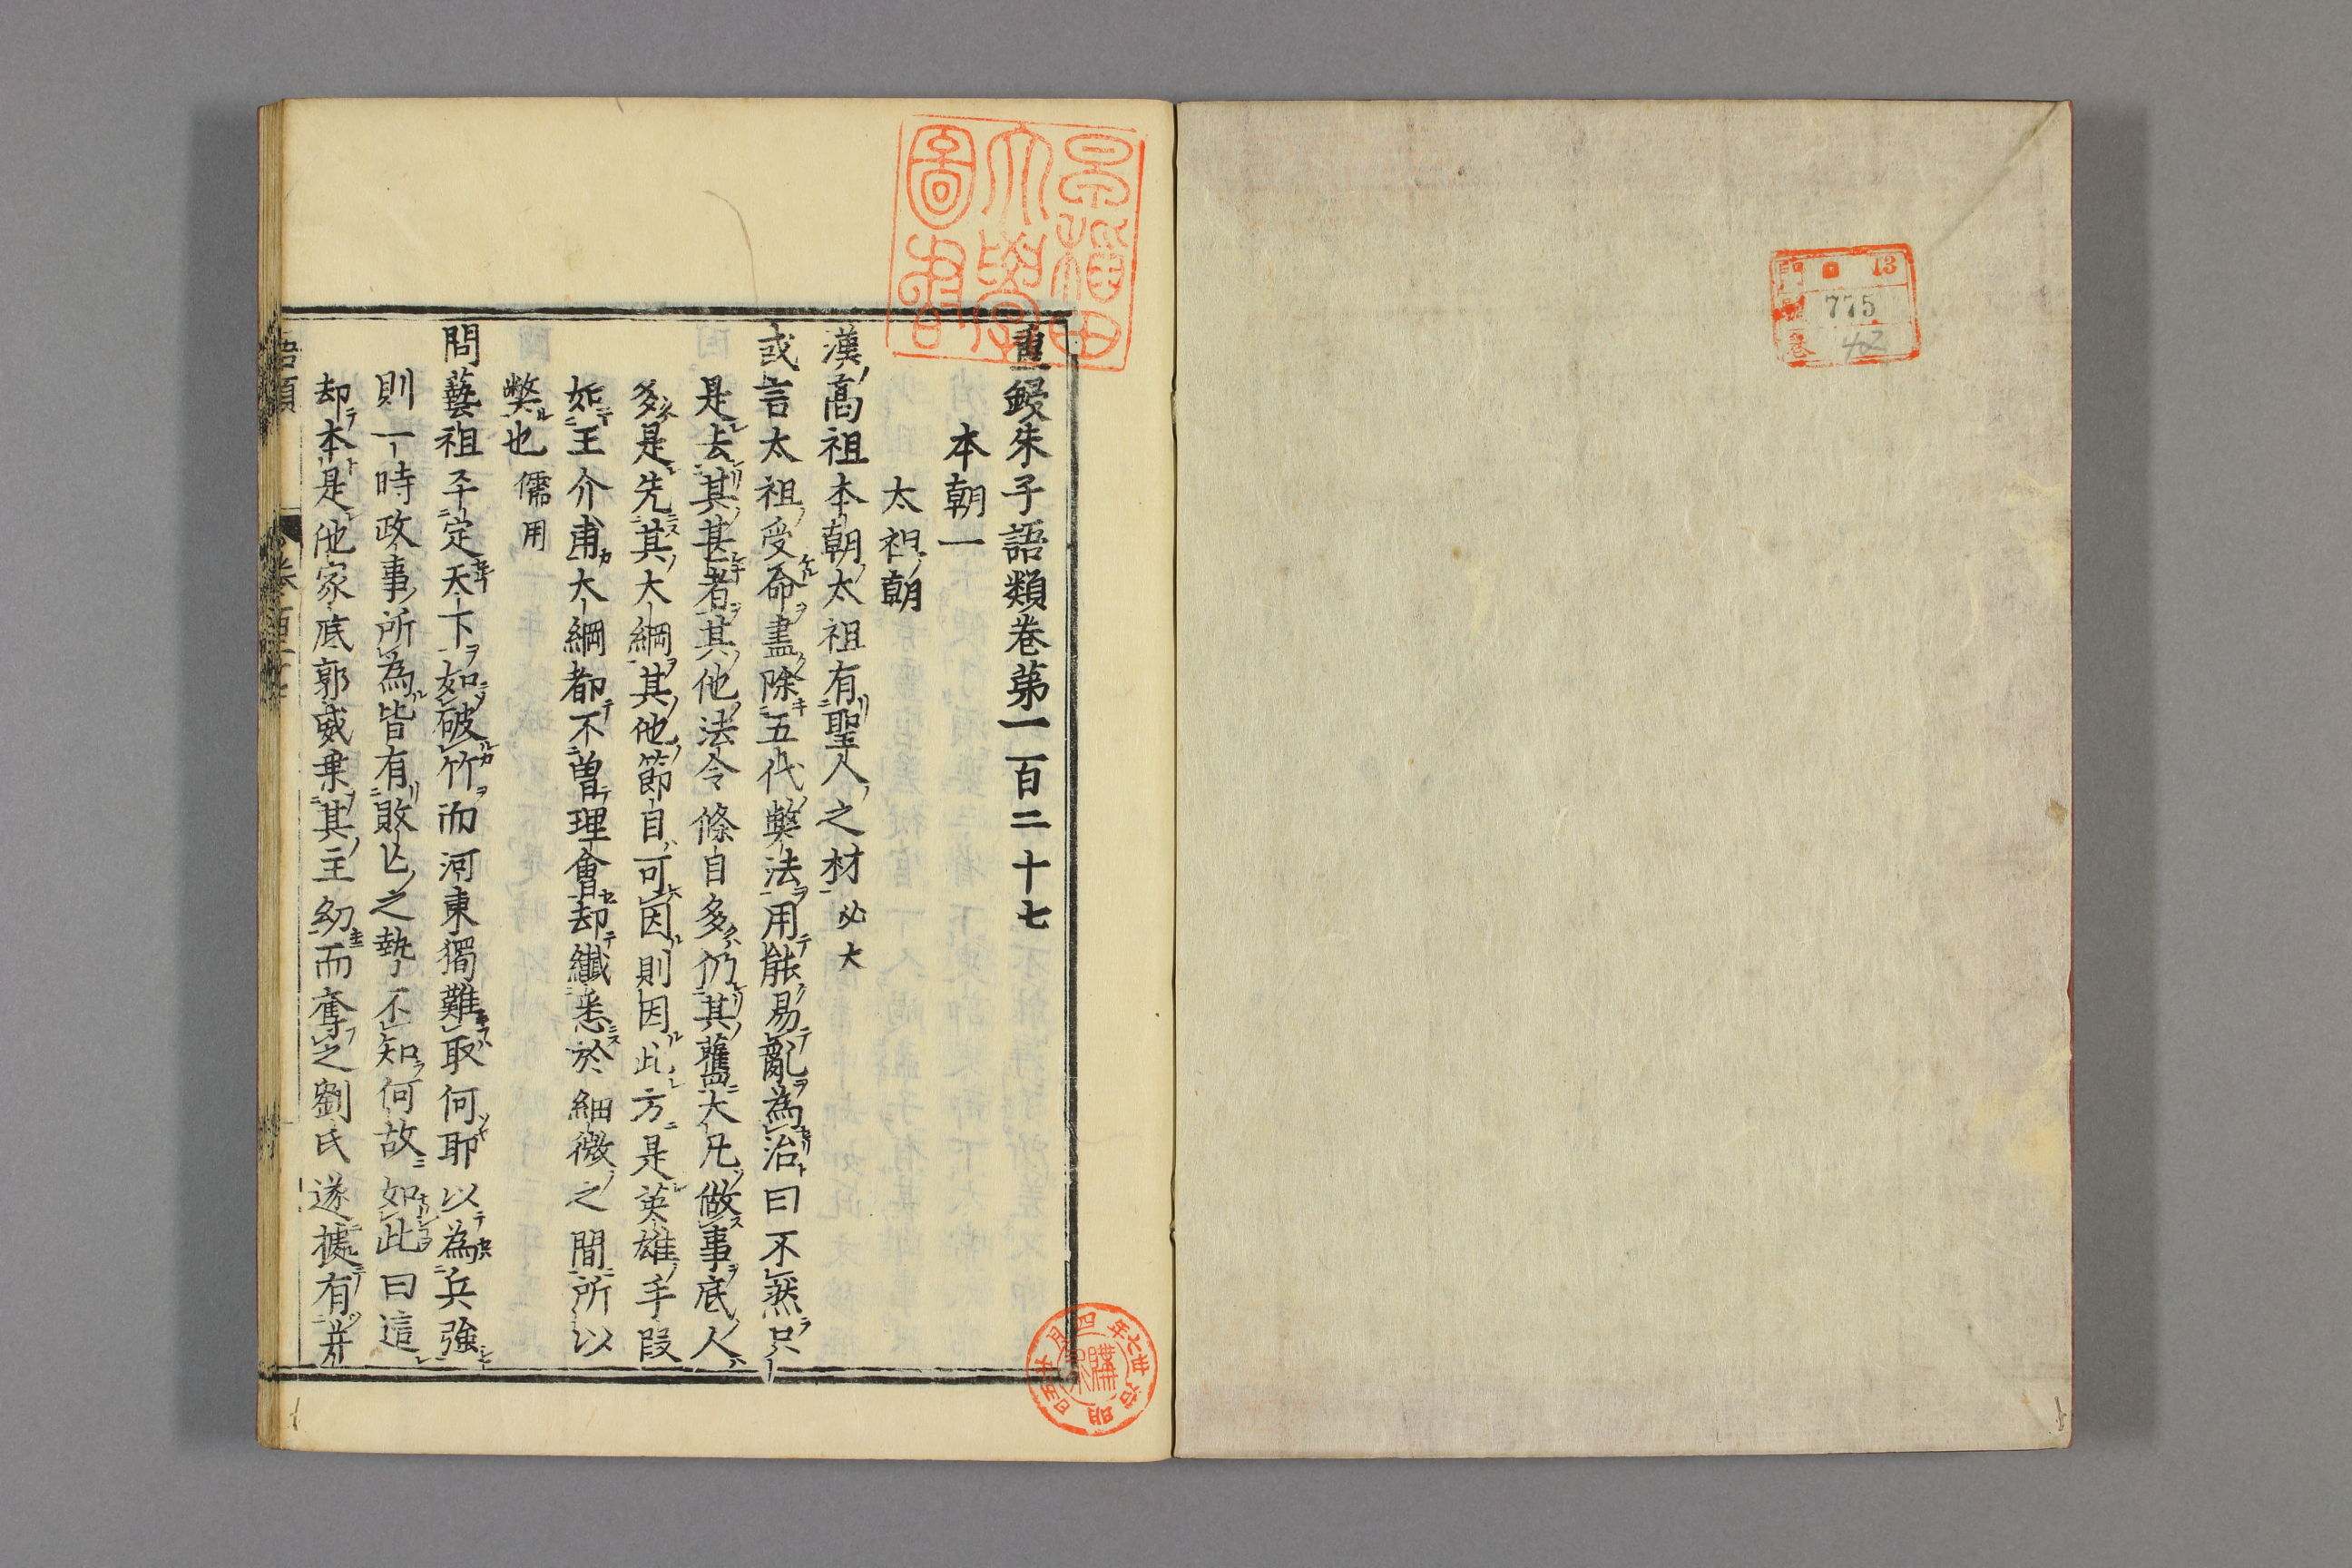 門 ロ 13
號 775
卷 42
早稲田
大學
圖書
重鋟朱子語類卷第一百二十七
本朝一
太祖朝
漢高祖本朝太祖有聖人之材 必大
或言太祖受命盡除五代弊法用能易亂為治曰不然只
是去其甚者其他法令條自多仍其舊大凡做事底人
多是先其大綱其他節目可因則因此方是英雄手段
如王介甫大綱都不曽理會却纎悉於細微之間所以
弊也 儒用
問藝祖平定天下如破竹而河東獨難取何耶以為兵強
則一時政事所為皆有敗亡之勢不知何故如此曰這
却本是他家底郭威乗其主幼而奪之劉氏遂據有并
語類 卷百二十七
明治卅七年四月十五日
購求